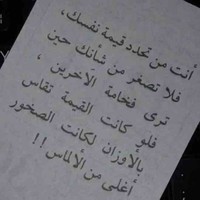 أنت من تحدد قيمة نفسك،
فلا تصغر من شأنك حين
ترى فخامة الآخرين ،
فلو كانت القيمة تقاس
بالأوزان لكانت الصخور
أغلى من الألماس!!